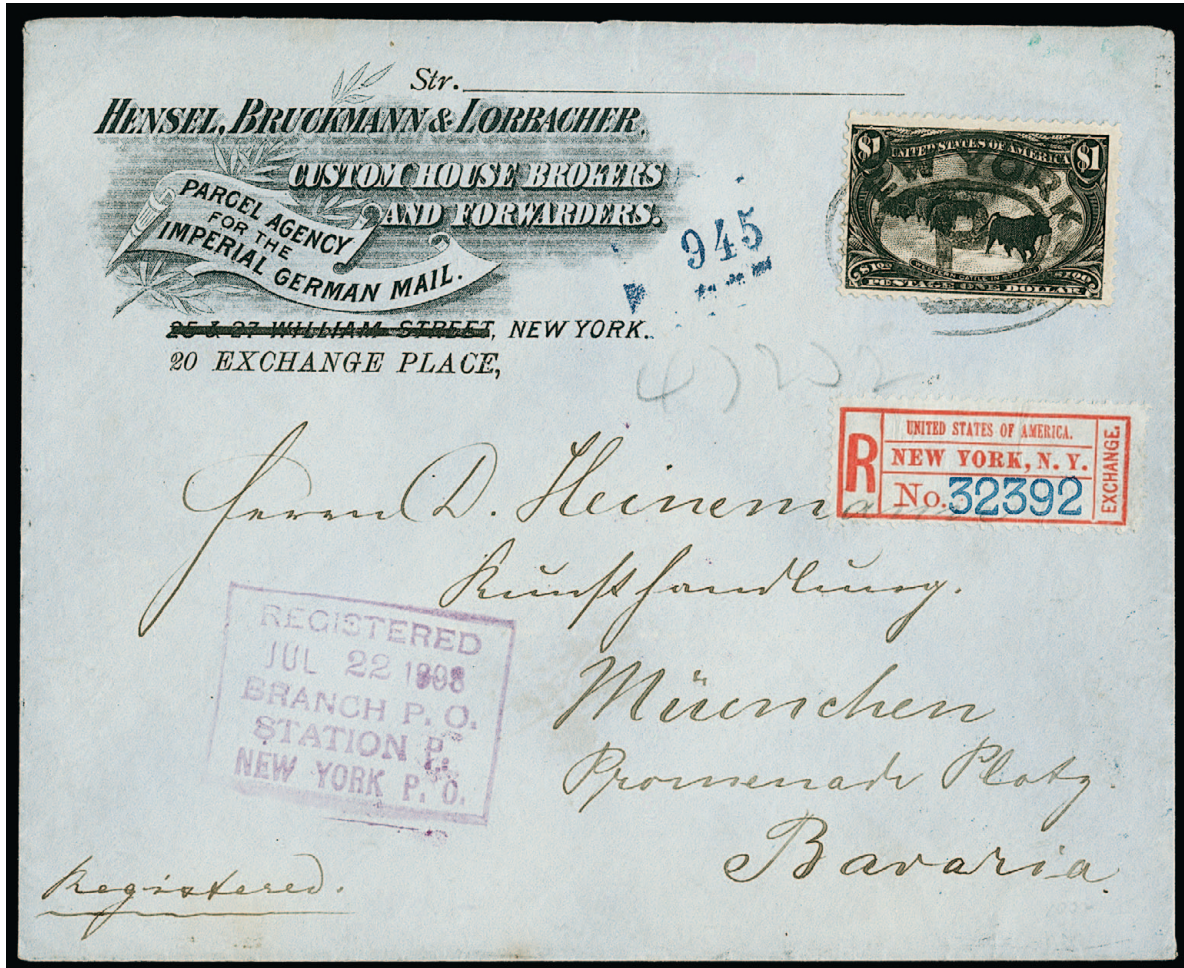 Str.
HENSEL, BRUCKMANN & LORBACHER,
CUSTOM HOUSE BROKERS
AND FORWARDERS.
PARCEL AGENCY
FOR THE
IMPERIAL GERMAN MAIL.
25 & 27 WILLIAM STREET, NEW YORK.
20 EXCHANGE PLACE,
945
$1 UNITED STATES OF AMERICA $1
NEW YORK
$1.00
POSTAGE ONE DOLLAR
R
UNITED STATES OF AMERICA.
NEW YORK, N. Y.
No. 32392
EXCHANGE.
Herrn D. Heinemann
Kunsthandlung.
REGISTERED
JUL 22 1898
BRANCH P. O.
STATION P.
NEW YORK P. O.
Müenchen
Promenade Platz.
Bavaria.
Registered.